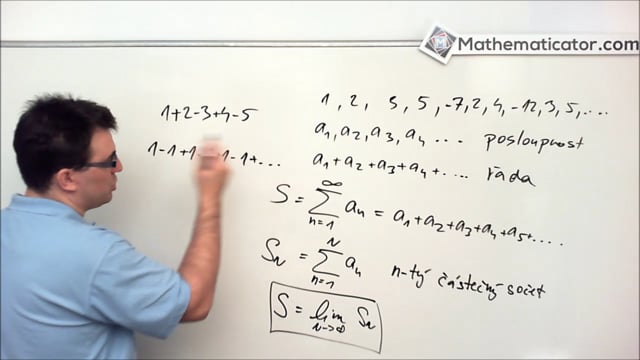 Mathematicator.com
1+2-3+4-5
1-1+1-1-1+...
1, 2, 3, 5, -7, 2, 4, -12, 3, 5, ...
a₁, a₂, a₃, a₄ ... posloupnost
a₁+a₂+a₃+a₄+.... řada
S = ∑_{n=1}^{∞} aₙ = a₁+a₂+a₃+a₄+a₅+....
S_N = ∑_{n=1}^{N} aₙ n-tý částečný součet
S = lim_{N→∞} S_N